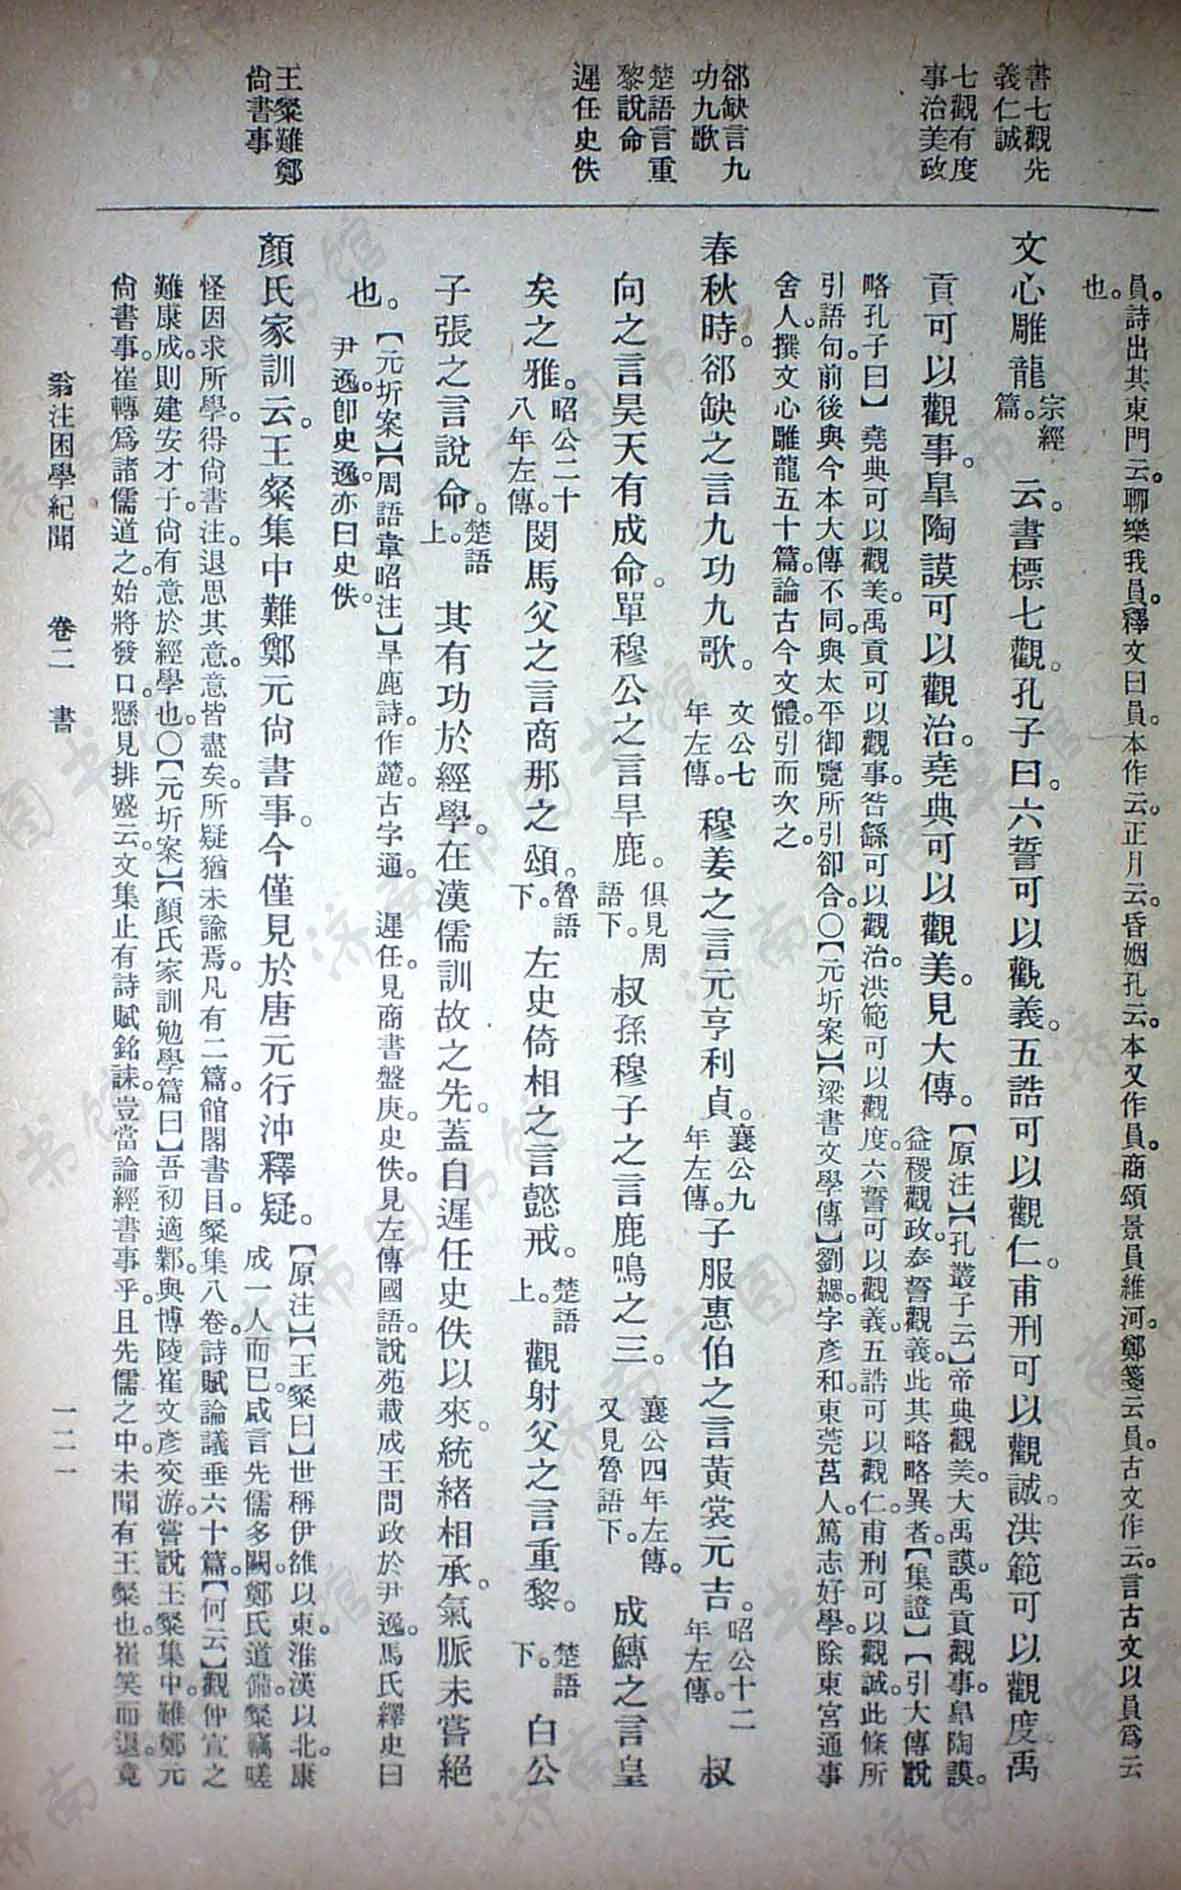 書七觀先
義仁誠
七觀有度
事治美政
郤缺言九
功九歌
楚語言重
黎說命
遲任史佚
王粲難鄭
尙書事
員。詩出其東門云。聊樂我員。釋文曰員。本作云。正月云。昏姻孔云。本又作員。商頌景員維河。鄭箋云員。古文作云。言古文以員爲云
也。
文心雕龍。宗經篇。云。書標七觀。孔子曰。六誓可以觀義。五誥可以觀仁。甫刑可以觀誠。洪範可以觀度。禹
貢可以觀事。臯陶謨可以觀治。堯典可以觀美。見大傳。【原注】【孔叢子云】帝典觀美。大禹謨。禹貢觀事。臯陶謨。
益稷觀政。泰誓觀義。此其略略異者。【集證】【引大傳說
略孔子曰】堯典可以觀美。禹貢可以觀事。咎繇可以觀治。洪範可以觀度。六誓可以觀義。五誥可以觀仁。甫刑可以觀誠。此條所
引語句。前後與今本大傳不同。與太平御覽所引卻合。〇【元圻案】【梁書文學傳】劉勰。字彥和。東莞莒人。篤志好學。除東宮通事
舍人。撰文心雕龍五十篇。論古今文體。引而次之。
春秋時。郤缺之言九功九歌。文公七年左傳。穆姜之言元亨利貞。襄公九年左傳。子服惠伯之言黃裳元吉。昭公十二年左傳。叔
向之言昊天有成命。單穆公之言旱鹿。俱見周語下。叔孫穆子之言鹿鳴之三。襄公四年左傳。又見魯語下。成鱄之言皇
矣之雅。昭公二十八年左傳。閔馬父之言商那之頌。魯語下。左史倚相之言懿戒。楚語上。觀射父之言重黎。楚語下。白公
子張之言說命。楚語上。其有功於經學。在漢儒訓故之先。蓋自遲任史佚以來。統緒相承。氣脈未嘗絕
也。【元圻案】【周語韋昭注】旱鹿詩。作麓。古字通。遲任。見商書盤庚。史佚。見左傳國語。說苑載成王問政於尹逸。馬氏繹史曰
尹逸。卽史逸。亦曰史佚。
顏氏家訓云。王粲集中難鄭元尙書事。今僅見於唐元行沖釋疑。【原注】【王粲曰】世稱伊雒以東。淮漢以北。康
成一人而已。咸言先儒多闕。鄭氏道備。粲竊嗟
怪。因求所學。得尙書注。退思其意。意皆盡矣。所疑猶未諭焉。凡有二篇。館閣書目。粲集八卷。詩賦論議垂六十篇。【何云】觀仲宣之
難康成。則建安才子。尙有意於經學也。〇【元圻案】【顏氏家訓勉學篇曰】吾初適鄴。與博陵崔文彥交游。嘗說王粲集中。難鄭元
尙書事。崔轉爲諸儒道之。始將發口。懸見排蹙云。文集止有詩賦銘誄。豈當論經書事乎。且先儒之中。未聞有王粲也。崔笑而退。竟
翁注困學紀聞 卷二 書 一二一